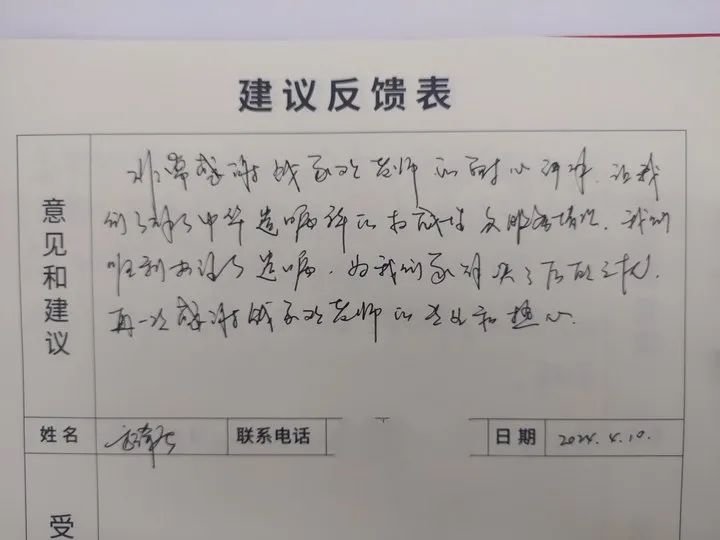 建议反馈表
意见和建议
非常感谢钱家欢老师的耐心讲解，让我
们了解了中华遗嘱库的权威性及服务情况，我们
顺利办理了遗嘱，为我们家解决了后顾之忧，
再一次感谢钱家欢老师的专业和热心
姓名
联系电话
日期 2024.4.10.
受